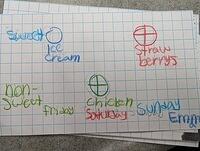 Sweet
Ice
cream
straw
berrys
non-
sweet
friday
chicken
Saturday
Sunday
Emm